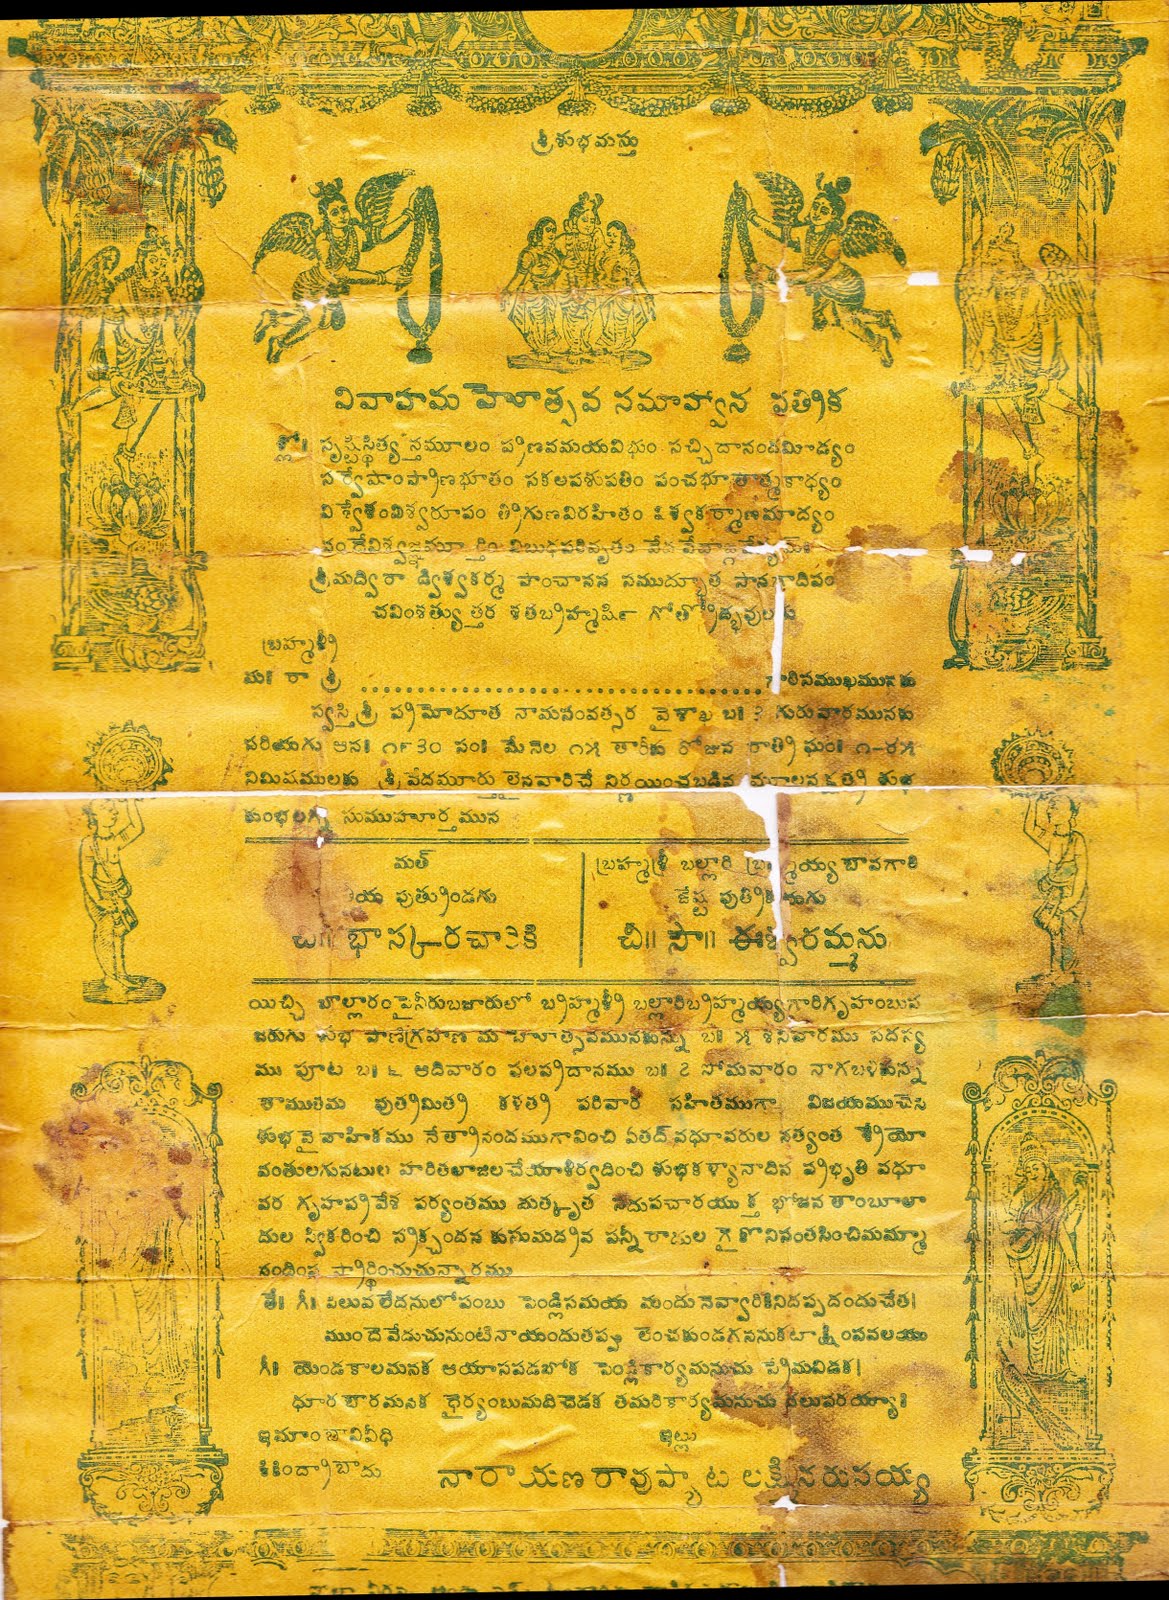 శ్రీ శుభమస్తు
వివాహమహోత్సవ సమాహ్వాన పత్రిక
శ్లో॥ సృష్టిస్థిత్య నమూలం ప్రణవమయవిభుం సచ్చిదానందమీడ్యం
సర్వేషాంప్రాణభూతం సకలపశుపతిం పంచభూతాత్మకాధ్యం
విశ్వేశంవిశ్వరూపం త్రిగుణవిరహితం విశ్వకర్మాణమాద్యం
వందేవిశ్వజ్ఞమూర్తిం విబుధపరివృతం
శ్రీమద్విరా డ్విశ్వకర్మ పాంచానన సముద్భూత సానగాదిపం
చవింశత్యుత్తర శతబ్రహ్మర్షి గోత్రోద్భవులగు
బ్రహ్మశ్రీ
మ॥ రా శ్రీ ........................................ గారిసముఖమునకు
స్వస్తి శ్రీ ప్రమోదూత నామసంవత్సర వైశాఖ బ॥ ౨ గురువారమునకు
సరియగు అన॥ ౧౯౩౦ సం॥ మే నెల ౧౫ తారీకు రోజున రాత్రి ఘం॥ ౧-౪౫
నిమిషములకు శ్రీ వేదమూర్తులైనవారిచే నిర్ణయించబడిన శుభ
కుంభలగ్న సుముహూర్తమున
మత్
య పుత్రుండగు
చి॥ భాస్కరచారికి
బ్రహ్మశ్రీ బల్లారి బ్రహ్మయ్య బావగారి
జేష్ట పుత్రికయగు
చి॥ సౌ॥ ఈశ్వరమ్మను
యిచ్చి బొల్లారం పైనీరుబజారులో బ్రహ్మశ్రీ బల్లారిబ్రహ్మయ్యగారిగృహంబున
జరుగు శుభ పాణిగ్రహణ మహోత్సవమునకున్ను బ॥ ౫ శనివారము సదస్య
ము పూట బ॥ ౬ ఆదివారం ఫలప్రదానము బ॥ ౭ సోమవారం నాగబళికిన్న
తాముతమ పుత్రమిత్ర కళత్ర పరివార సహితముగా విజయముచేసి
శుభవైవాహికము నేత్రానందముగావించి ఏతద్వధూవరుల నత్యంత శ్రేయో
వంతులగునటుల హరితలాజలచే యాశీర్వదించి శుభకళ్యానాదిన ప్రభృతి వధూ
వర గృహప్రవేశ పర్యంతము మత్కృత సదుపచారయుక్త భోజన తాంబూలా
దుల స్వీకరించి స్రక్చందన కుసుమద్రవ పన్నీరాదుల గైకొనిసంతసించిమమ్మా
నందింప ప్రార్థించుచున్నారము
తే॥ గీ॥ పిలువలేదనులోపంబు పెండ్లిసమయ మందునెవ్వారికినిదప్పదందుచేత।
ముందెవేడుచునుంటినాయందుతప్పు లెంచకుండగననుకటాక్షింపవలయు
గీ॥ యెండకాలమనక ఆయాసపడబోక పెండ్లికార్యమనుచు ప్రేమవిడక।
ధూరభారమనక ధైర్యంబుమదిచెడక తమరికార్యమనుచు దలుపరయ్యా॥
ఇమాంబావివీధి
శికింద్రాబాదు
ఇల్లు
నారాయణరావుప్యాట లక్ష్మినరుసయ్య